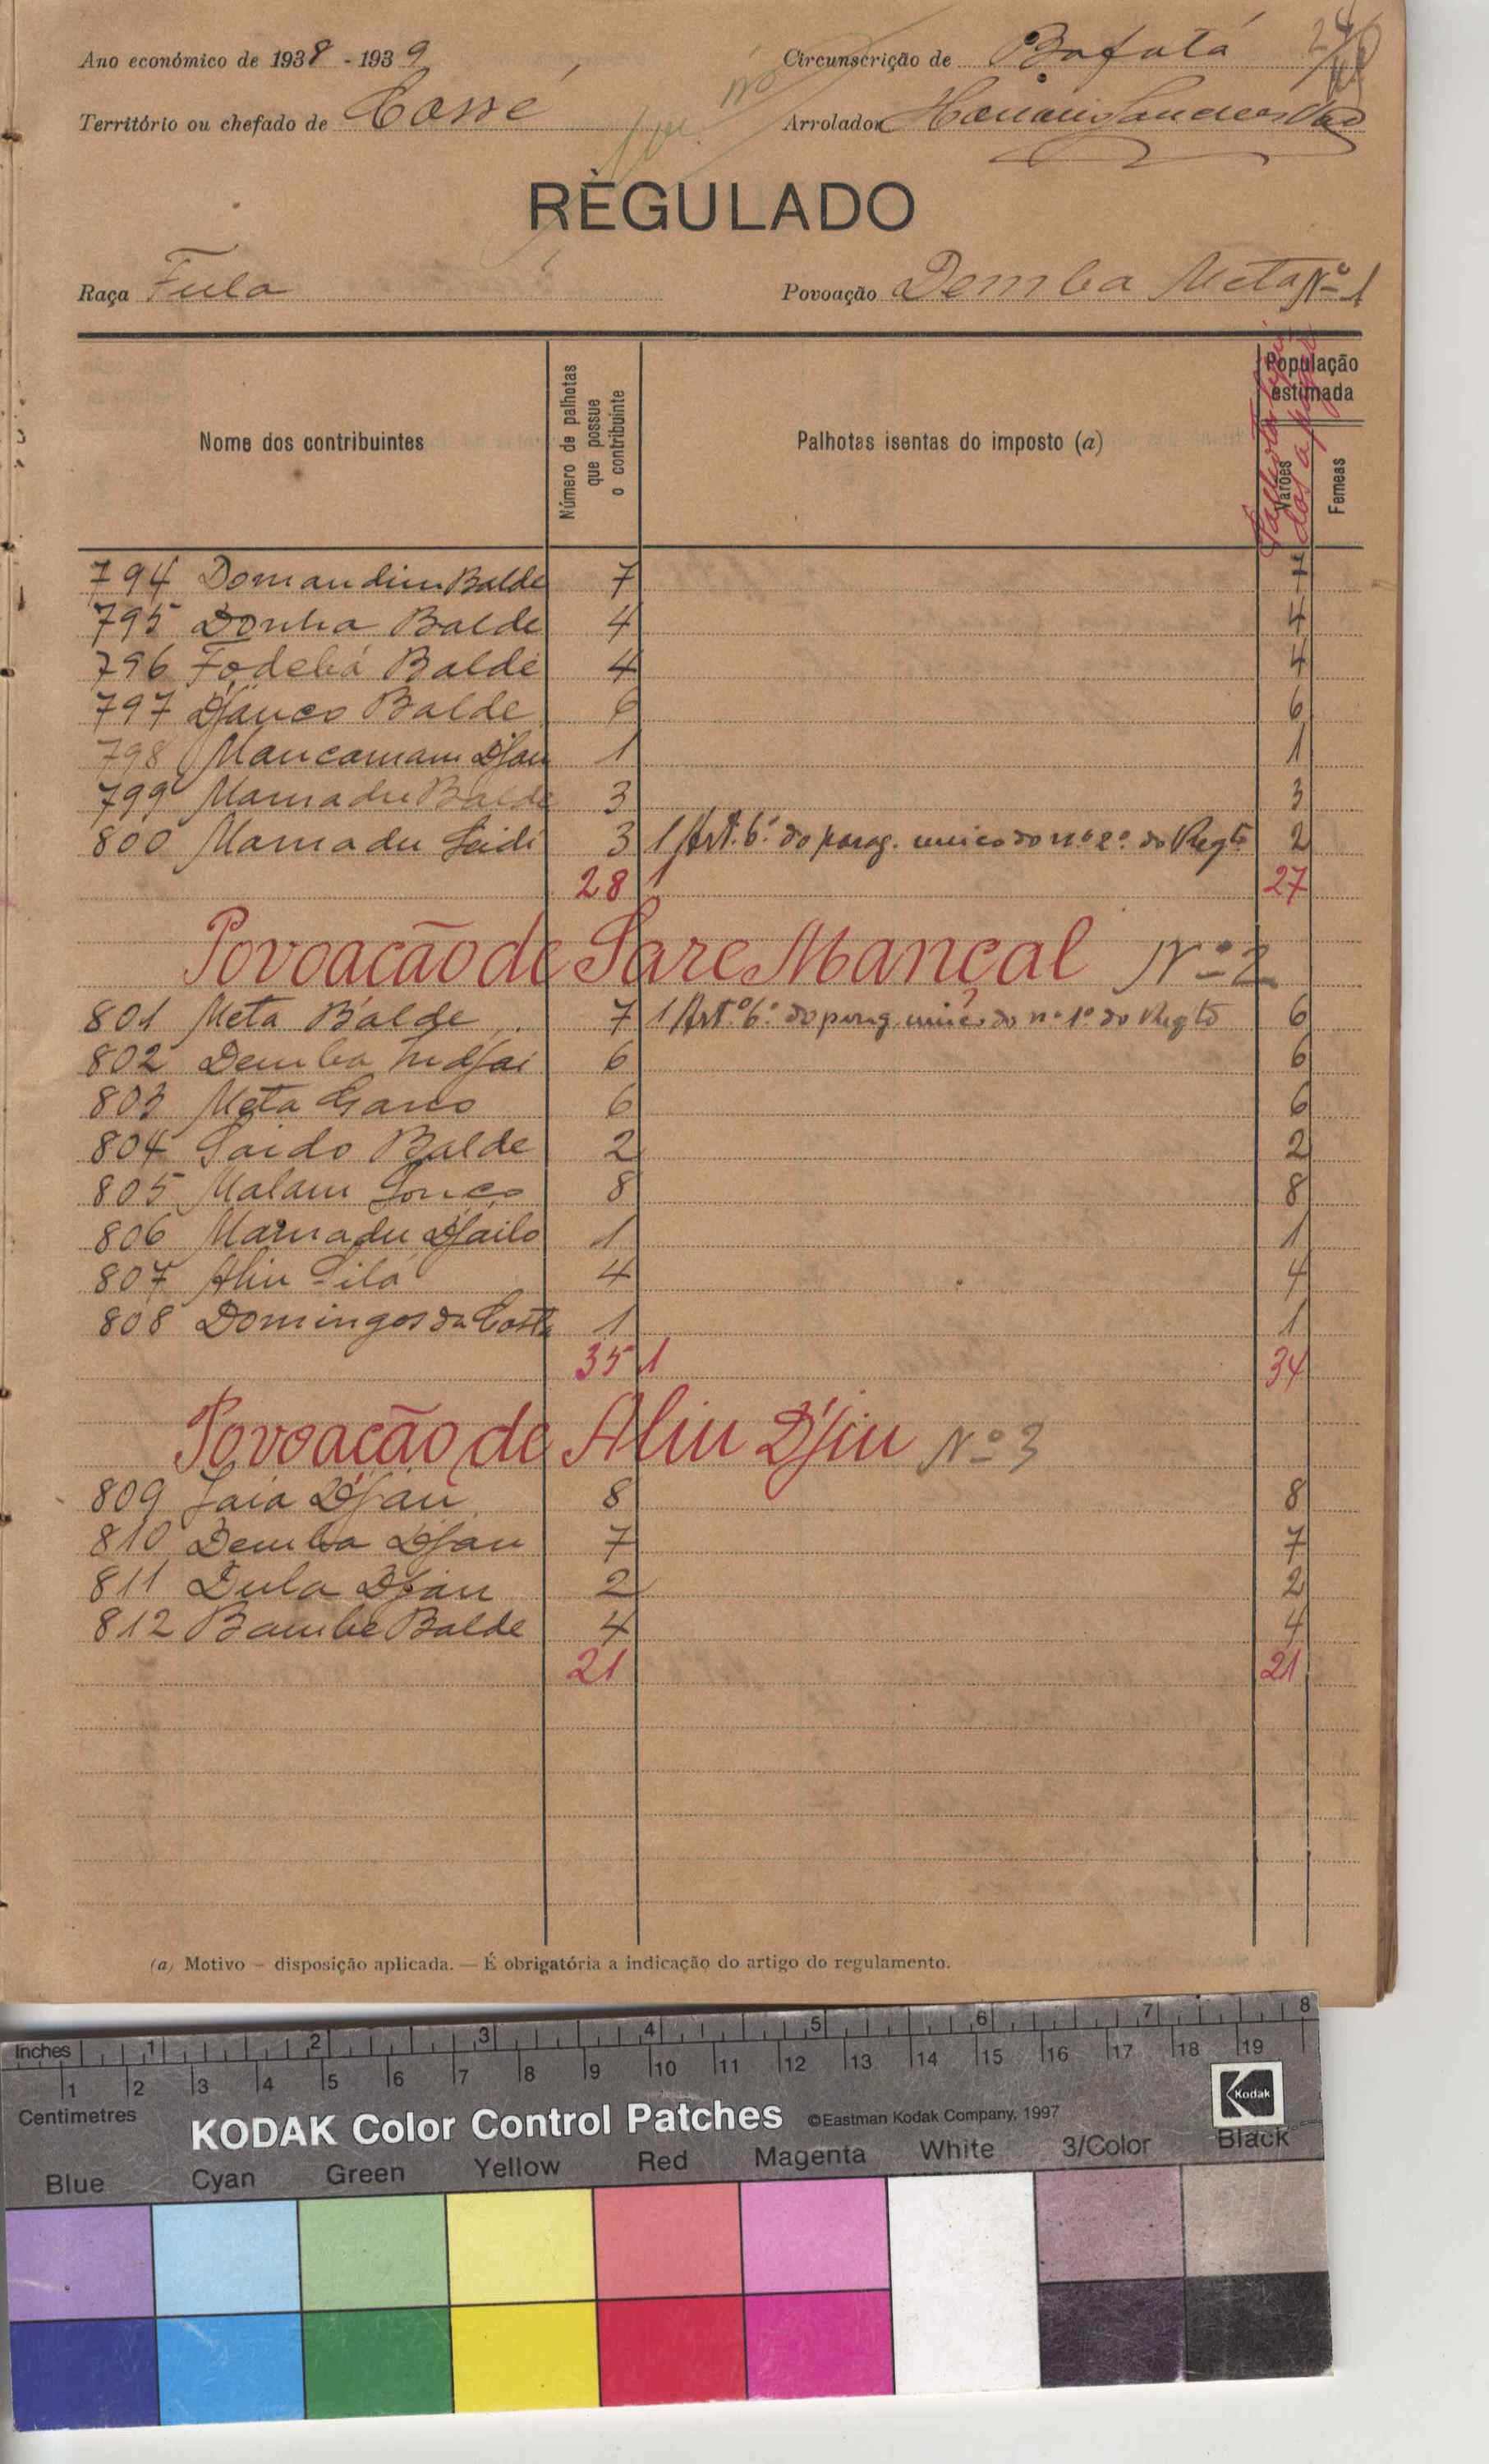 Ano económico de 1938 - 1939
Circunscrição de Bafatá
Território ou chefado de Cossé
Arrolador
RÈGULADO
Raça Fula
Povoação Demba Meta Nº 1
Nome dos contribuintes
Número de palhotas que possue o contribuinte
Palhotas isentas do imposto (a)
População estimada
Varões
Femeas
794 Domandim Balde 7 7
795 Donha Balde 4 4
796 Fodebá Balde 4 4
797 Djanco Balde 6 6
798 Mancamam Djau 1 1
799 Mamadu Balde 3 3
800 Mamadu Seidi 3 1 Art. 6º do parag. unico do nº 2º do Regtº 2
28 1 27
Povoação de Sare Mançal Nº 2
801 Meta Balde 7 1 Artº 6º do parag. unico do nº 1º do Regtº 6
802 Demba Indjai 6 6
803 Meta Gano 6 6
804 Saido Balde 2 2
805 Malam Sonco 8 8
806 Mamadu Djaló 1 1
807 Aliu Silá 4 4
808 Domingos da Costa 1 1
35 1 34
Povoação de Aliu Djiu Nº 3
809 Jaia Djau 8 8
810 Demba Djau 7 7
811 Dula Djau 2 2
812 Bambe Balde 4 4
21 21
(a) Motivo – disposição aplicada. — É obrigatória a indicação do artigo do regulamento.
Inches 1 2 3 4 5 6 7 8
1 2 3 4 5 6 7 8 9 10 11 12 13 14 15 16 17 18 19
Centimetres
KODAK Color Control Patches ©Eastman Kodak Company, 1997
Kodak
Blue Cyan Green Yellow Red Magenta White 3/Color Black